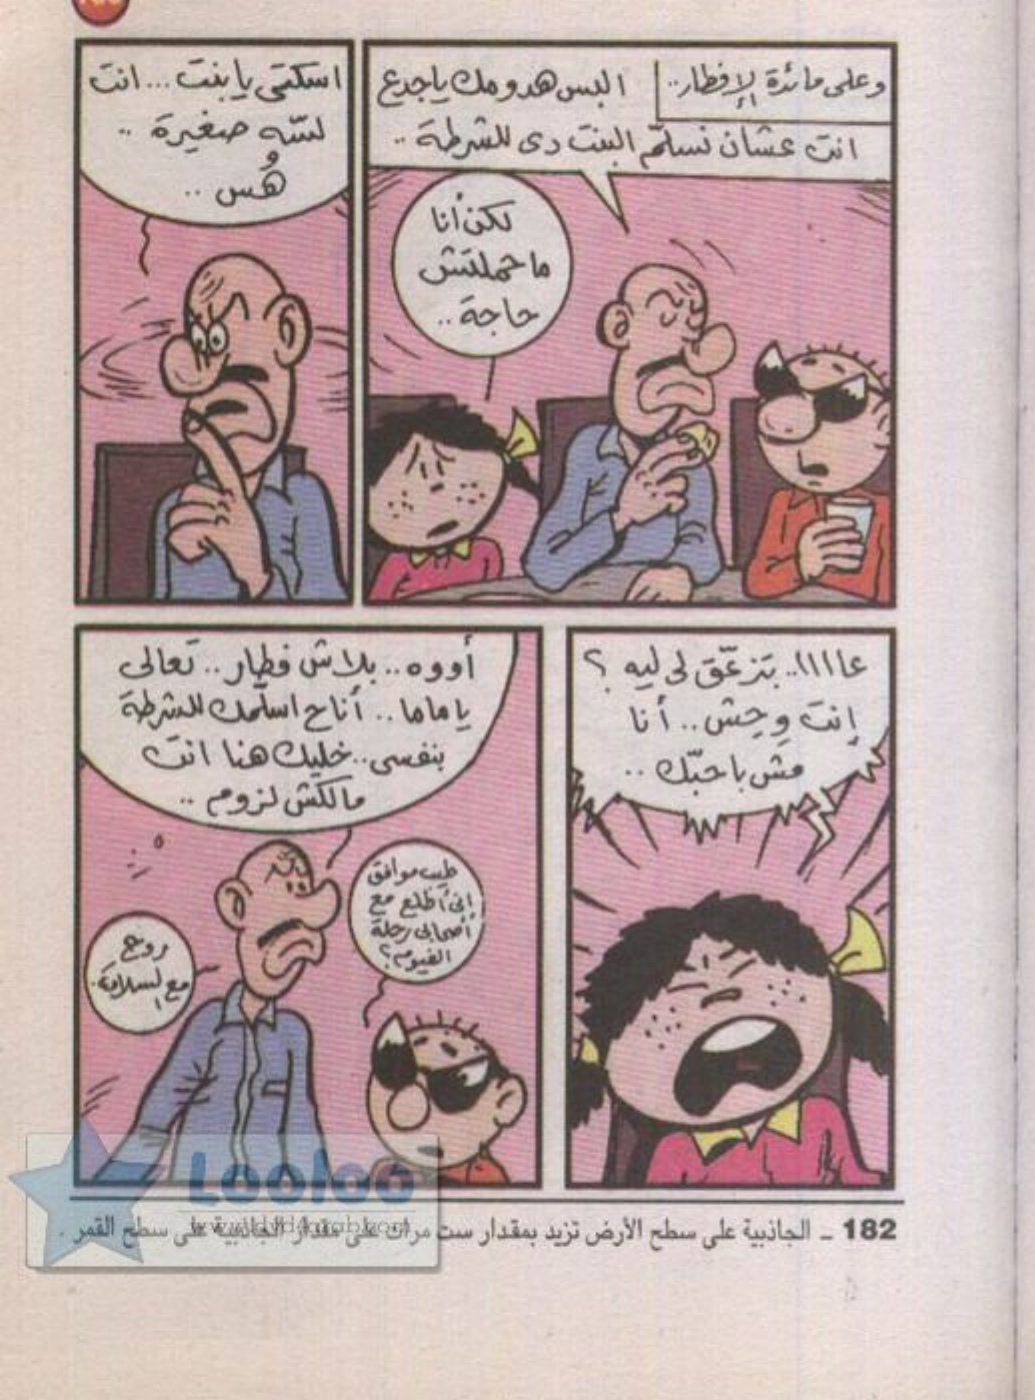 وعلى مائدة الإفطار..
البس هدومك ياجدع
انت عشان نسلّم البنت دى للشرطة ..
لكن أنا
ما عملتش
حاجة ..
اسكتى يا بنت ... انت
لسّه صغيرة ..
هُس ..
عاااا.. بتزعّق لى ليه ؟
إنت وِحِش .. أنا
مش باحبّك ..
أووه .. بلاش فطار .. تعالى
يا ماما .. أنا ح اسلّمك للشرطة
بنفسى .. خليك هنا انت
مالكش لزوم ..
طيب موافق
إنى أطلع مع
أصحابى رحلة
الفيوم ؟
روح
مع السلامة.
182 ــ الجاذبية على سطح الأرض تزيد بمقدار ست مرات على مقدار الجاذبية على سطح القمر .
Looloo